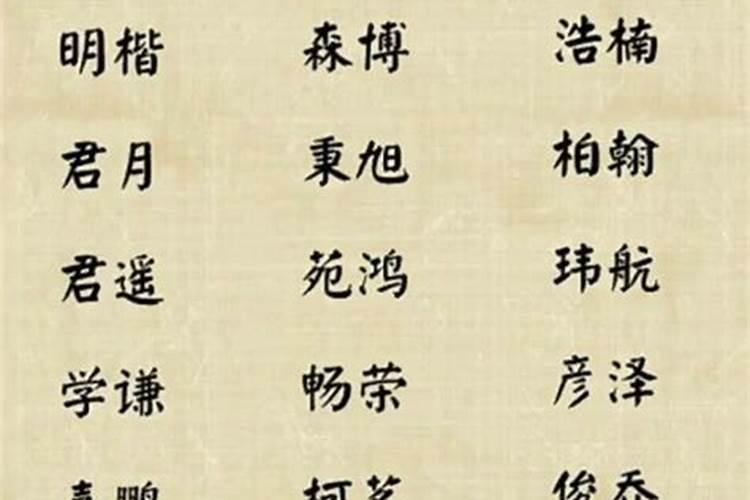 明楷 森博 浩楠
君月 秉旭 柏翰
君遥 苑鸿 玮航
学谦 畅荣 彦泽
鹏 柯 俊